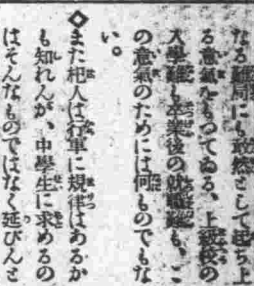 なる難局にも敢然として起ち上
る意氣をもつてゐる、上級校の
入學難も卒業後の就職難も、こ
の意氣のためには何ものでもな
い。
◇また杞人は行軍に規律はあるか
も知れんが、中學生に求めるの
はそんなものではなく延びんと